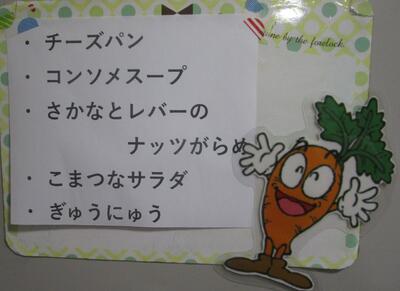 ine by the forelock.
・ チーズパン
・ コンソメスープ
・ さかなとレバーの
ナッツがらめ
・ こまつなサラダ
・ ぎゅうにゅう